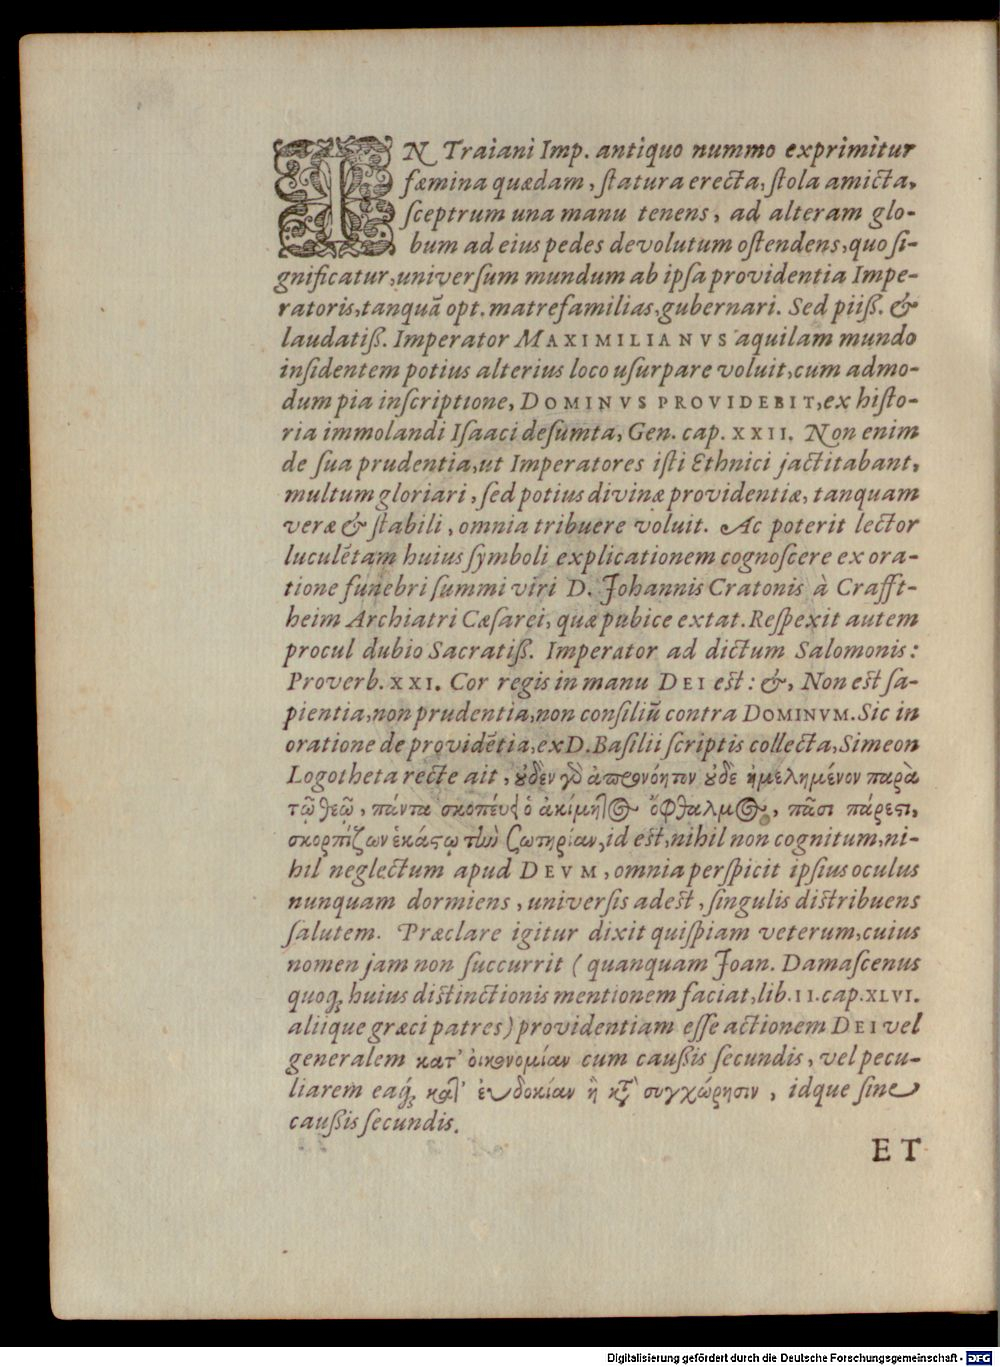 IN Traiani Imp. antiquo nummo exprimitur
fæmina quædam, ſtatura erecta, ſtola amicta,
ſceptrum una manu tenens, ad alteram glo-
bum ad eius pedes devolutum oſtendens, quo ſi-
gnificatur, univerſum mundum ab ipſa providentia Impe-
ratoris, tanquã opt. matrefamilias, gubernari. Sed piiß. &
laudatiß. Imperator MAXIMILIANVS aquilam mundo
inſidentem potius alterius loco uſurpare voluit, cum admo-
dum pia inſcriptione, DOMINVS PROVIDEBIT, ex hiſto-
ria immolandi Iſaaci deſumta, Gen. cap. XXII. Non enim
de ſua prudentia, ut Imperatores iſti Ethnici jactitabant,
multum gloriari, ſed potius divinæ providentiæ, tanquam
veræ & ſtabili, omnia tribuere voluit. Ac poterit lector
luculẽtam huius ſymboli explicationem cognoſcere ex ora-
tione funebri ſummi viri D. Johannis Cratonis à Crafft-
heim Archiatri Cæſarei, quæ pubice extat. Reſpexit autem
procul dubio Sacratiß. Imperator ad dictum Salomonis:
Proverb. XXI. Cor regis in manu DEI eſt: &, Non eſt ſa-
pientia, non prudentia, non conſiliũ contra DOMINVM. Sic in
oratione de providẽtia, ex D. Baſilii ſcriptis collecta, Simeon
Logotheta recte ait, ȣ̓δὲν γὸ ἀπρονόητον ȣ̓δὲ ἠμελημένον παρὰ
τῷ θεῷ, πάντα σκοπέυει ὁ ἀκίμητος ὀφθαλμὸς, πᾶσι πάρεστι,
σκορπίζων ἑκάστῳ τὴν ζωτηρίαν, id eſt, nihil non cognitum, ni-
hil neglectum apud DEVM, omnia perſpicit ipſius oculus
nunquam dormiens, univerſis adeſt, ſingulis diſtribuens
ſalutem. Præclare igitur dixit quiſpiam veterum, cuius
nomen jam non ſuccurrit (quanquam Joan. Damaſcenus
quoq; huius diſtinctionis mentionem faciat, lib. II. cap. XLVI.
aliique græci patres) providentiam eſſe actionem DEI vel
generalem κατ' οἰκονομίαν cum caußis ſecundis, vel pecu-
liarem eaq; κατ' ἐυδοκίαν ἢ κτ̀ συγχώρησιν, idque ſine
caußis ſecundis.
ET
Digitalisierung gefördert durch die Deutsche Forschungsgemeinschaft - DFG